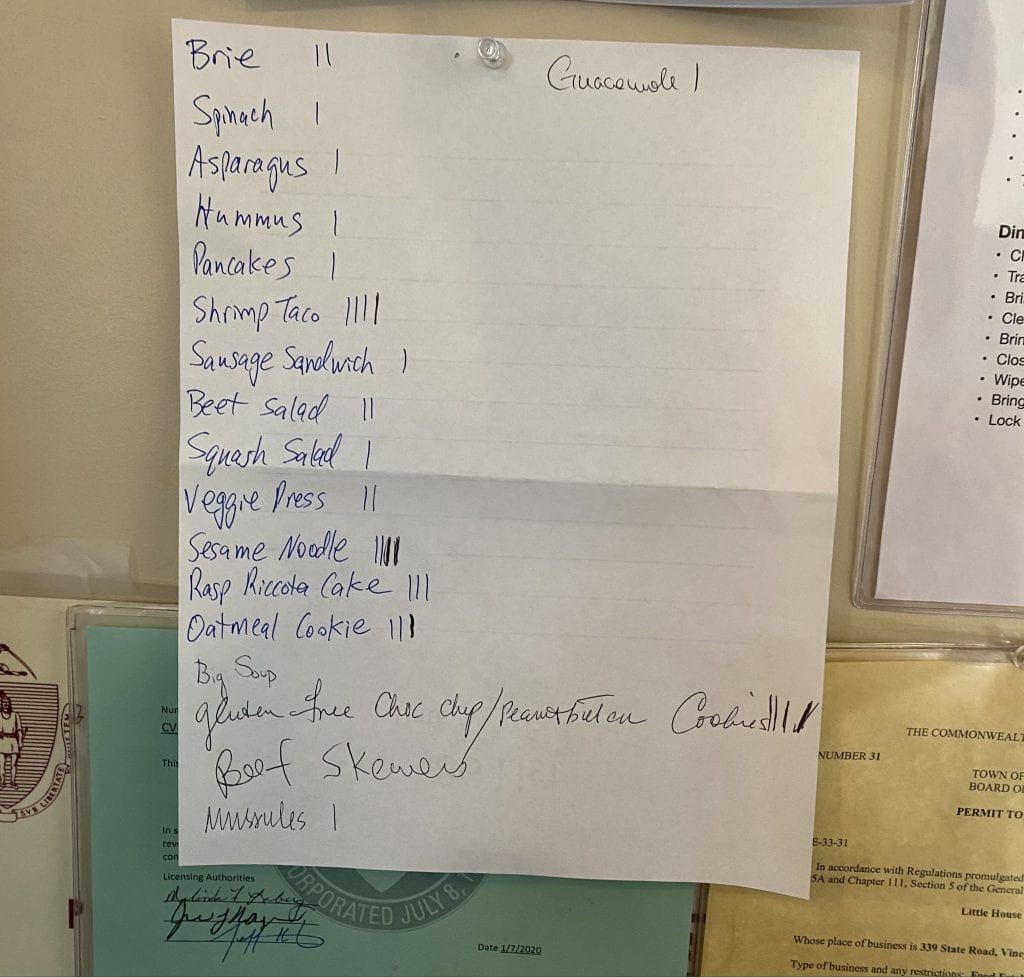 Brie ||
Guacamole |
Spinach |
Asparagus |
Hummus |
Pancakes |
Shrimp Taco ||||
Sausage Sandwich |
Beet Salad ||
Squash Salad |
Veggie Press ||
Sesame Noodle |||||
Rasp Riccota Cake |||
Oatmeal Cookie |||
Big Soup
gluten-free Choc chip/peanutbutter Cookies ||||
Beef Skewers
Mussules |
Din
• Cl
• Tra
• Bri
• Cle
• Brin
• Clos
• Wipe
• Bring
• Lock
SVB LIBERTATE
Num
CV-
This
In s
rev
con
Licensing Authorities
CORPORATED JULY 8, 1
Date 1/7/2020
THE COMMONWEALT
NUMBER 31
TOWN OF
BOARD OF
PERMIT TO
E-33-31
In accordance with Regulations promulgated
5A and Chapter 111, Section 5 of the General
Little House
Whose place of business is 339 State Road, Vine
Type of business and any restrictions: Food Est